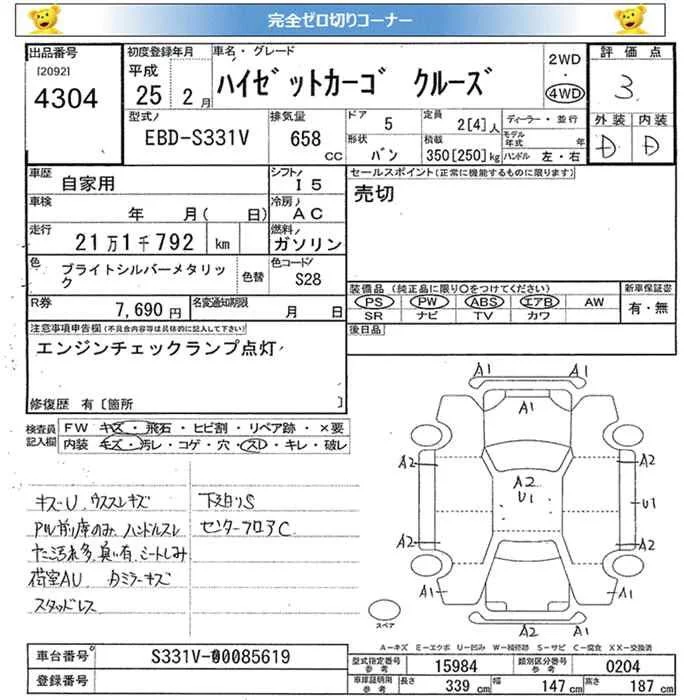 完全ゼロ切りコーナー
出品番号
[2092]
4304
初度登録年月
平成
25年 2月
車名・グレード
ハイゼットカーゴ クルーズ
2WD
・
4WD
評価点
3
外装 内装
D D
型式
EBD-S331V
排気量
658
CC
ドア
5
定員
2[4]人
形状
バン
積載
350[250]kg
ディーラー・並行
モデル年式 年
ハンドル 左・右
車歴
自家用
シフト
I5
車検
年 月( 日)
冷房
AC
走行
21万1千792 km
燃料
ガソリン
色
ブライトシルバーメタリック
色替
色コード
S28
R券
7,690円
名変通知期限
月 日
セールスポイント(正常に機能するものに限ります)
売切
装備品(純正品に限り○をつけてください)
PS PW ABS エアB AW
SR ナビ TV カワ
新車保証書
有・無
後日品
注意事項申告欄(不具合内容等は具体的に記入して下さい)
エンジンチェックランプ点灯
修復歴 有[箇所 ]
検査員記入欄
FW キズ・飛石・ヒビ割・リペア跡・×要
内装 キズ・汚レ・コゲ・穴・スレ・キレ・破レ
キズU ウススレキズ
PW前席のみ ハンドルスレ
シートしみ
荷室AU カミラーキズ
スタッドレス
下廻りS
センターフロアC
A1 A1
A1
A2 A2
A2
U1
U1
A2 A2
A1 A1
A1
スペア
A-キズ E-エクボ U-凹み W-補修跡 S-サビ C-腐食 XX-交換済
車台番号
S331V-00085619
登録番号
型式指定番号
参考
15984
類別区分番号
参考
0204
車庫証明用
参考
長さ
339cm
幅
147cm
高さ
187cm